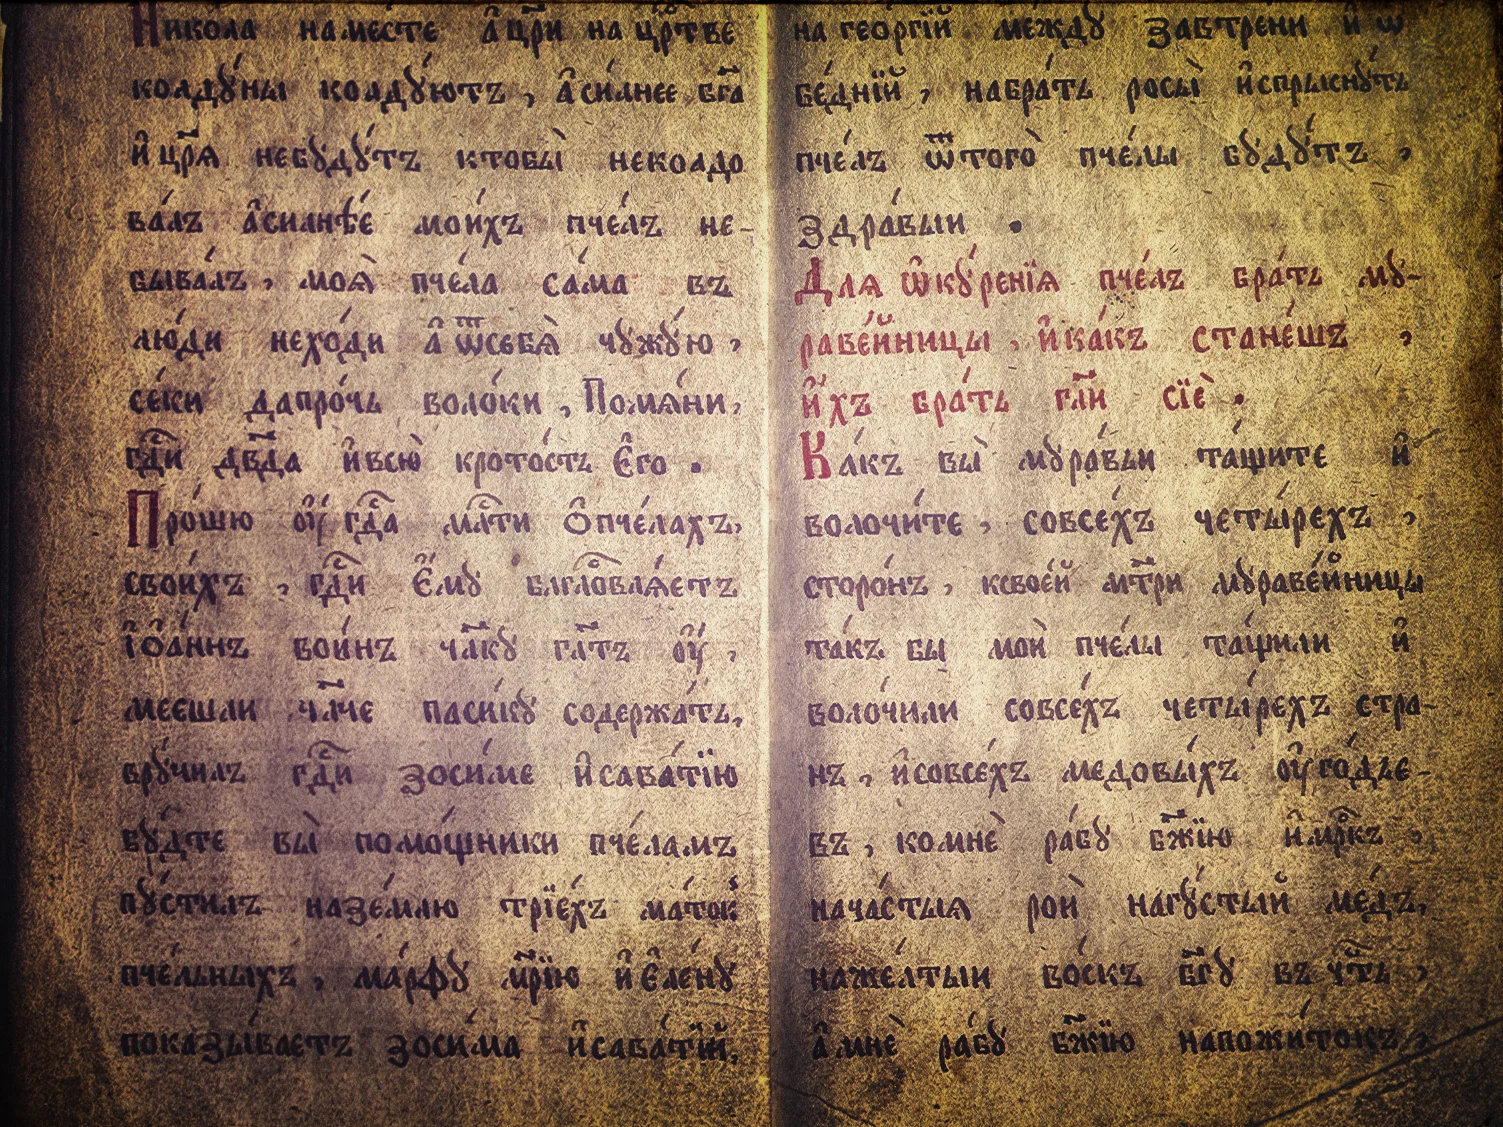 Никола намѣсте а҆цр҃и нацр҃тве
колду́ны колду́ютъ, а҆си́лнее бг҃а
и҆цр҃ѧ небуду́тъ ктобы̀ неколдо
ва́лъ а҆си́лнѣе мои́хъ пче́лъ не-
быва́лъ, моѧ̀ пче́ла са́ма въ
лю́ди неходи а҆ ѿсебѧ̀ чужу́ю,
се́ки дапро́чь воло́ки, Помѧ́ни,
гд҇и дв҃да и҆всю̀ кро́тость Є҆го.
Про́шю оу҆ гд҇а мл҇ти ѻ҆пче́лахъ,
свои́хъ, гд҇и є҆́му благ҇ловлѧ́етъ
і҆ѻа́ннъ во́инъ чл҃ку гл҃тъ оу҆,
мееши ли чл҃че па́сику содержа́ть,
вручи́лъ гд҇и зоси́ме и҆сава́тїю
бу́дте вы̀ помо́щники пче́ламъ
пу́стилъ назе́млю трїе́хъ ма́ток
пче́льныхъ, ма́рфу мр҃їю и҆ є҆ле́ну
показы́ваетъ зоси́ма и҆сава́тїй,
на гео́ргїй ме́жду за́втрени и҆ ѡ
бе́днїй, набра́ть росы̀ и҆спрыснуть
пче́лъ ѿтого̀ пче́лы бу́дутъ,
здра́выи.
Для ѡ҆ку́ренїя пче́лъ бра́ть му-
раве́йницы, и҆ка́къ стане́шъ,
и҆́хъ бра́ть гл҃и сїѐ.
Ка́къ вы̀ мура́вьи та́щите и҆
волочи́те, совсе́хъ четы́рехъ,
сторо́нъ, ксвое́й мт҃ри мураве́йницы
та́къ бы мои̇̀ пче́лы та́щили и҆
воло́чили совсе́хъ четы́рехъ стра-
нъ, и҆совсе́хъ медовы́хъ оу҆го́дье-
въ, комнѐ ра́бу бж҃їю и҆мр҃къ,
нача́стыя рои̇̀ нагу́стый ме́дъ,
наже́лтыи во́скъ бг҃у въ че́ть,
а҆ мнѐ ра́бу бж҃їю напожи́токъ,